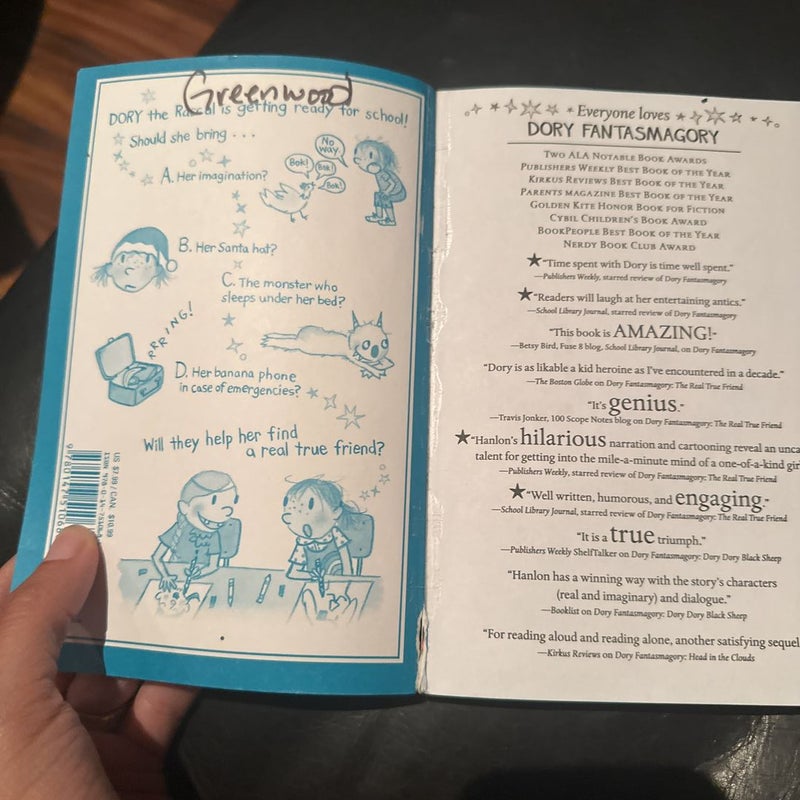 Greenwood
DORY the Rascal is getting ready for school!
Should she bring . . .
A. Her imagination?
No way.
Bok!
Bok!
Bok!
B. Her Santa hat?
C. The monster who
sleeps under her bed?
RRRING!
D. Her banana phone
in case of emergencies?
Will they help her find
a real true friend?
US $7.99 / CAN. $10.99
Everyone loves
DORY FANTASMAGORY
Two ALA Notable Book Awards
Publishers Weekly Best Book of the Year
Kirkus Reviews Best Book of the Year
Parents Magazine Best Book of the Year
Golden Kite Honor Book for Fiction
Cybil Children's Book Award
BookPeople Best Book of the Year
Nerdy Book Club Award
★"Time spent with Dory is time well spent."
—Publishers Weekly, starred review of Dory Fantasmagory
★"Readers will laugh at her entertaining antics."
—School Library Journal, starred review of Dory Fantasmagory
"This book is AMAZING!"
—Betsy Bird, Fuse 8 blog, School Library Journal, on Dory Fantasmagory
"Dory is as likable a kid heroine as I've encountered in a decade."
—The Boston Globe on Dory Fantasmagory: The Real True Friend
"It's genius."
—Travis Jonker, 100 Scope Notes blog on Dory Fantasmagory: The Real True Friend
★"Hanlon's hilarious narration and cartooning reveal an unca
talent for getting into the mile-a-minute mind of a one-of-a-kind gir
—Publishers Weekly, starred review of Dory Fantasmagory: The Real True Friend
★"Well written, humorous, and engaging."
—School Library Journal, starred review of Dory Fantasmagory: The Real True Friend
"It is a true triumph."
—Publishers Weekly ShelfTalker on Dory Fantasmagory: Dory Dory Black Sheep
"Hanlon has a winning way with the story's characters
(real and imaginary) and dialogue."
—Booklist on Dory Fantasmagory: Dory Dory Black Sheep
"For reading aloud and reading alone, another satisfying sequel
—Kirkus Reviews on Dory Fantasmagory: Head in the Clouds